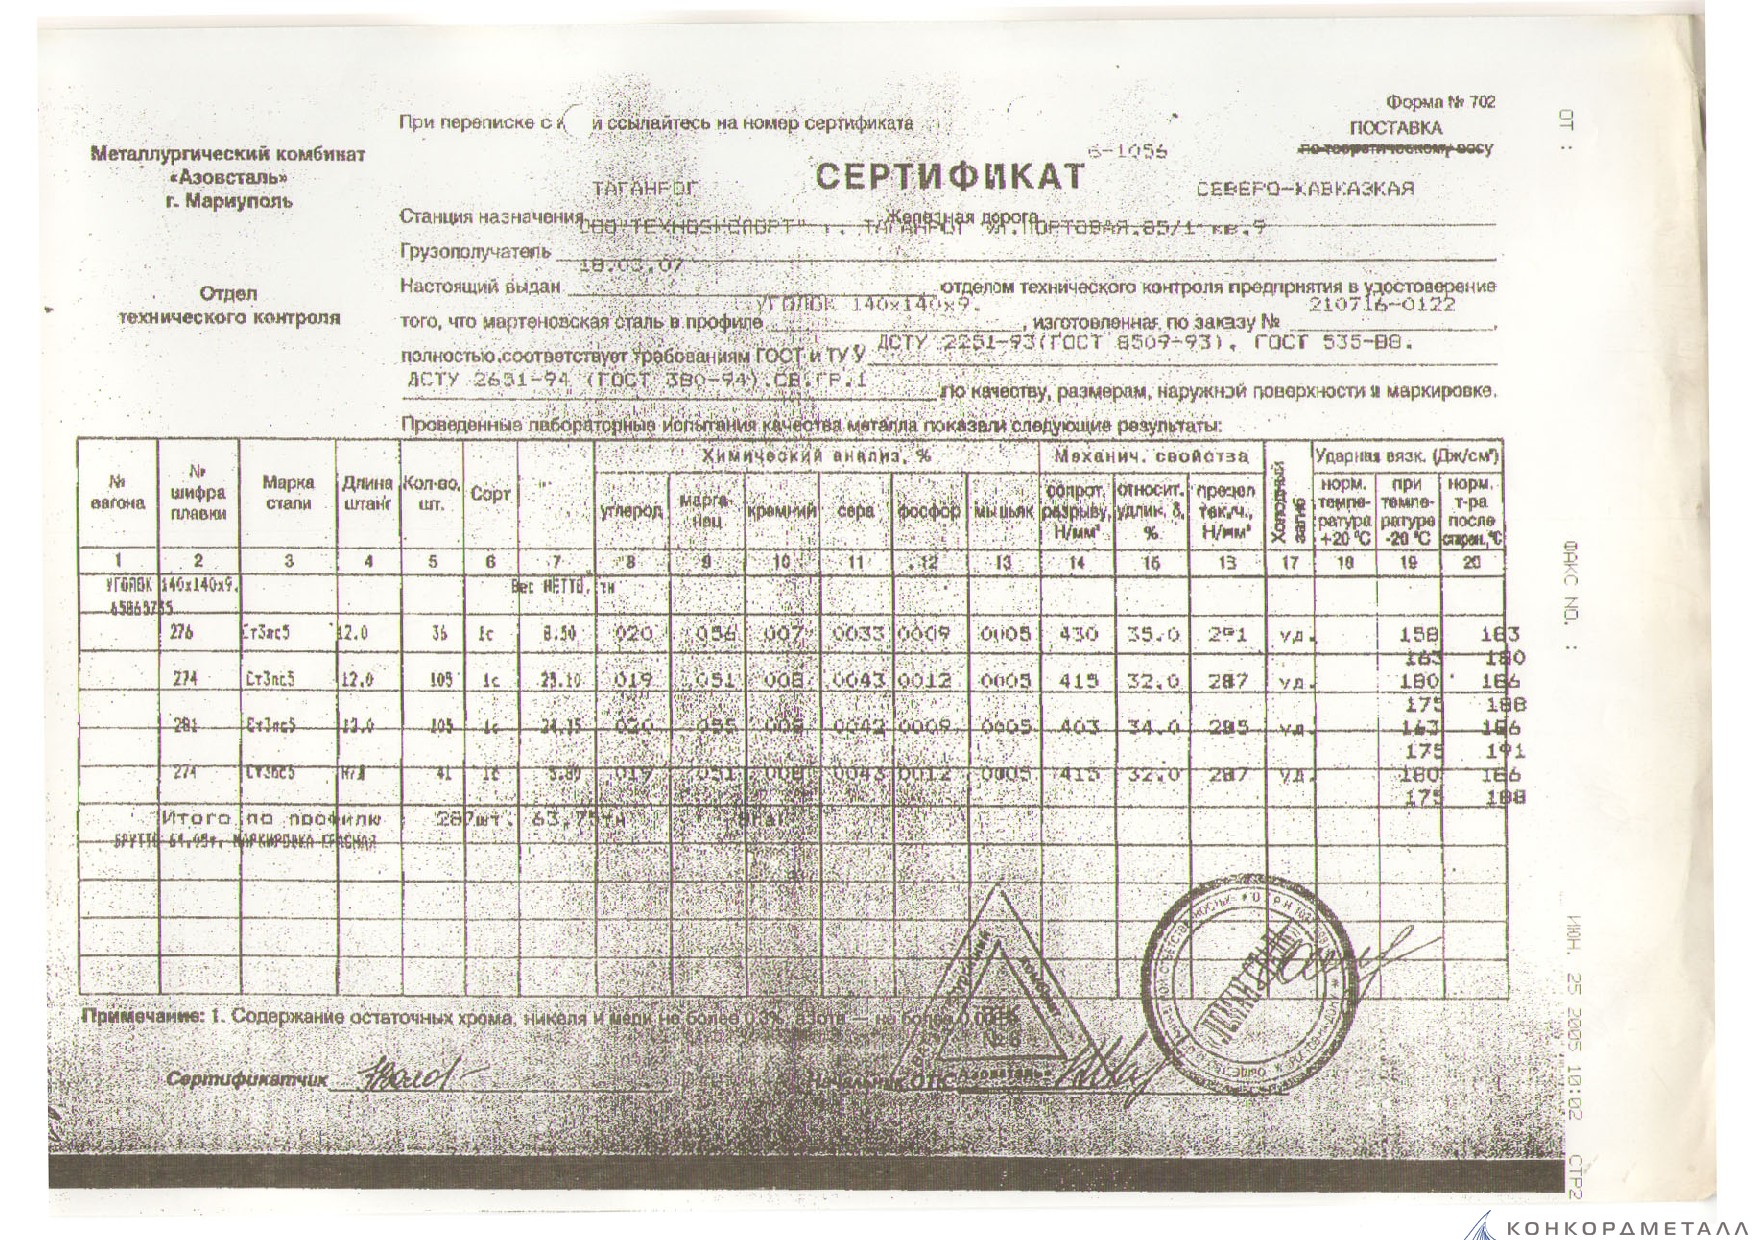 Форма № 702
При переписке с и ссылайтесь на номер сертификата
ПОСТАВКА
по теоретическому весу
Металлургический комбинат
«Азовсталь»
г. Мариуполь
6-1056
СЕРТИФИКАТ
ТАГАНРОГ СЕВЕРО-КАВКАЗКАЯ
Станция назначения Железная дорога
ООО "ТЕХНОЭКСПОРТ" г. ТАГАНРОГ УЛ.ПОРТОВАЯ.85/1 кв.9
Грузополучатель
18.03.07
Отдел
технического контроля
Настоящий выдан отделом технического контроля предприятия в удостоверение
УГОЛОК 140х140х9. 210716-0122
того, что мартеновская сталь в профиле , изготовленная по заказу № ,
ДСТУ 2251-93(ГОСТ 8509-93), ГОСТ 535-88.
полностью соответствует требованиям ГОСТ и ТУ У
ДСТУ 2651-94 (ГОСТ 380-94).СВ.ГР.1
по качеству, размерам, наружной поверхности и маркировке.
Проведенные лабораторные испытания качества металла показали следующие результаты:
№ вагона № шифра плавки Марка стали Длина штанг Кол-во, шт. Сорт Химический анализ, % Механич. свойства Холодный загиб Ударная вязк. (Дж/см²)
углерод марганец кремний сера фосфор мышьяк сопрот. разрыву, Н/мм² относит. удлин. δ, % предел тек/ч., Н/мм² норм. температура +20 °С при температуре -20 °С норм. т-ра после старен,°С
1 2 3 4 5 6 7 8 9 10 11 12 13 14 15 13 17 18 19 20
УГОЛОК 140х140х9. Вес НЕТТО, тн
65865735
276 Ст3пс5 12.0 36 1с 8.50 020 056 007 0033 0009 0005 430 35.0 291 уд. 158 183
163 180
274 Ст3пс5 12.0 105 1с 25.10 019 051 008 0043 0012 0005 415 32.0 287 уд. 180 186
175 188
281 Ст3пс5 12.0 105 1с 24.35 020 055 008 0042 0009 0005 403 34.0 285 уд. 163 186
175 191
274 Ст3пс5 Н/Д 41 1с 5.80 019 051 008 0043 0012 0005 415 32.0 287 уд. 180 186
175 188
Итого по профилю 287шт. 63,75тн
БРУТТО 64.05т. МАРКИРОВКА КРАСНАЯ
Примечание: 1. Содержание остаточных хрома, никеля и меди не более 0,3%, азота — не более
Сертификатчик Начальник ОТК
«Азовсталь»
ОТ :
ФАКС NO. :
ИЮН. 25 2005 10:02 СТР2
КОНКОРДМЕТАЛЛ